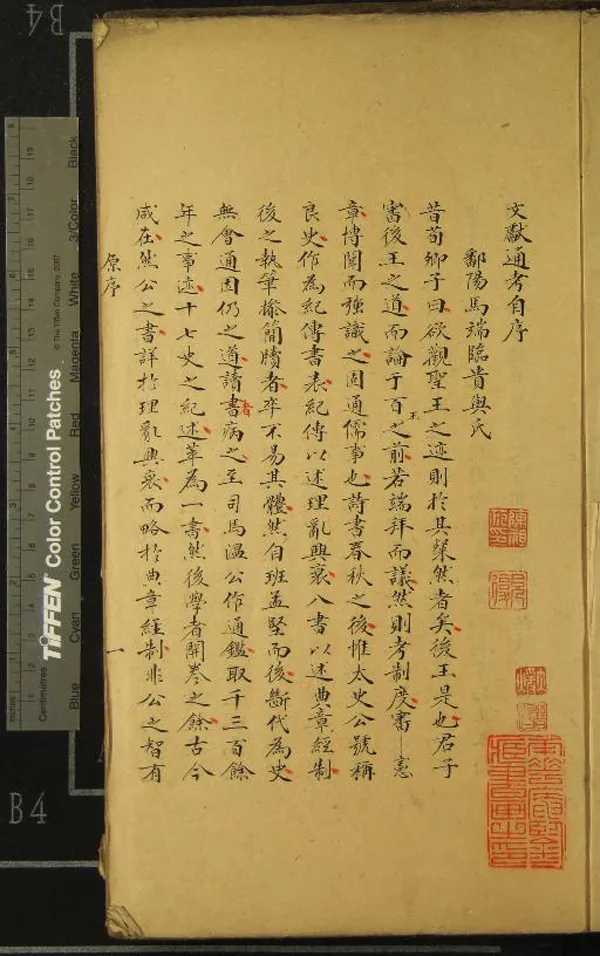 文獻通考自序
鄱陽馬端臨貴與氏
昔荀卿子曰欲觀聖王之迹則於其粲然者矣後王是也君子
審後王之道而論于百王之前若端拜而議然則考制度審憲
章博聞而強識之固通儒事也詩書春秋之後惟太史公號稱
良史作為紀傳書表紀傳以述理亂興衰八書以述典章經制
後之執筆操簡牘者卒不易其體然自班孟堅而後斷代為史
無會通因仍之道讀書者病之至司馬溫公作通鑑取千三百餘
年之事迹十七史之紀述萃為一書然後學者開卷之餘古今
咸在然公之書詳於理亂興衰而略於典章經制非公之智有
原序 一
B4
B4
TIFFEN Color Control Patches
© The Tiffen Company, 2007
Blue Cyan Green Yellow Red Magenta White 3/Color Black
Inches
Centimetres